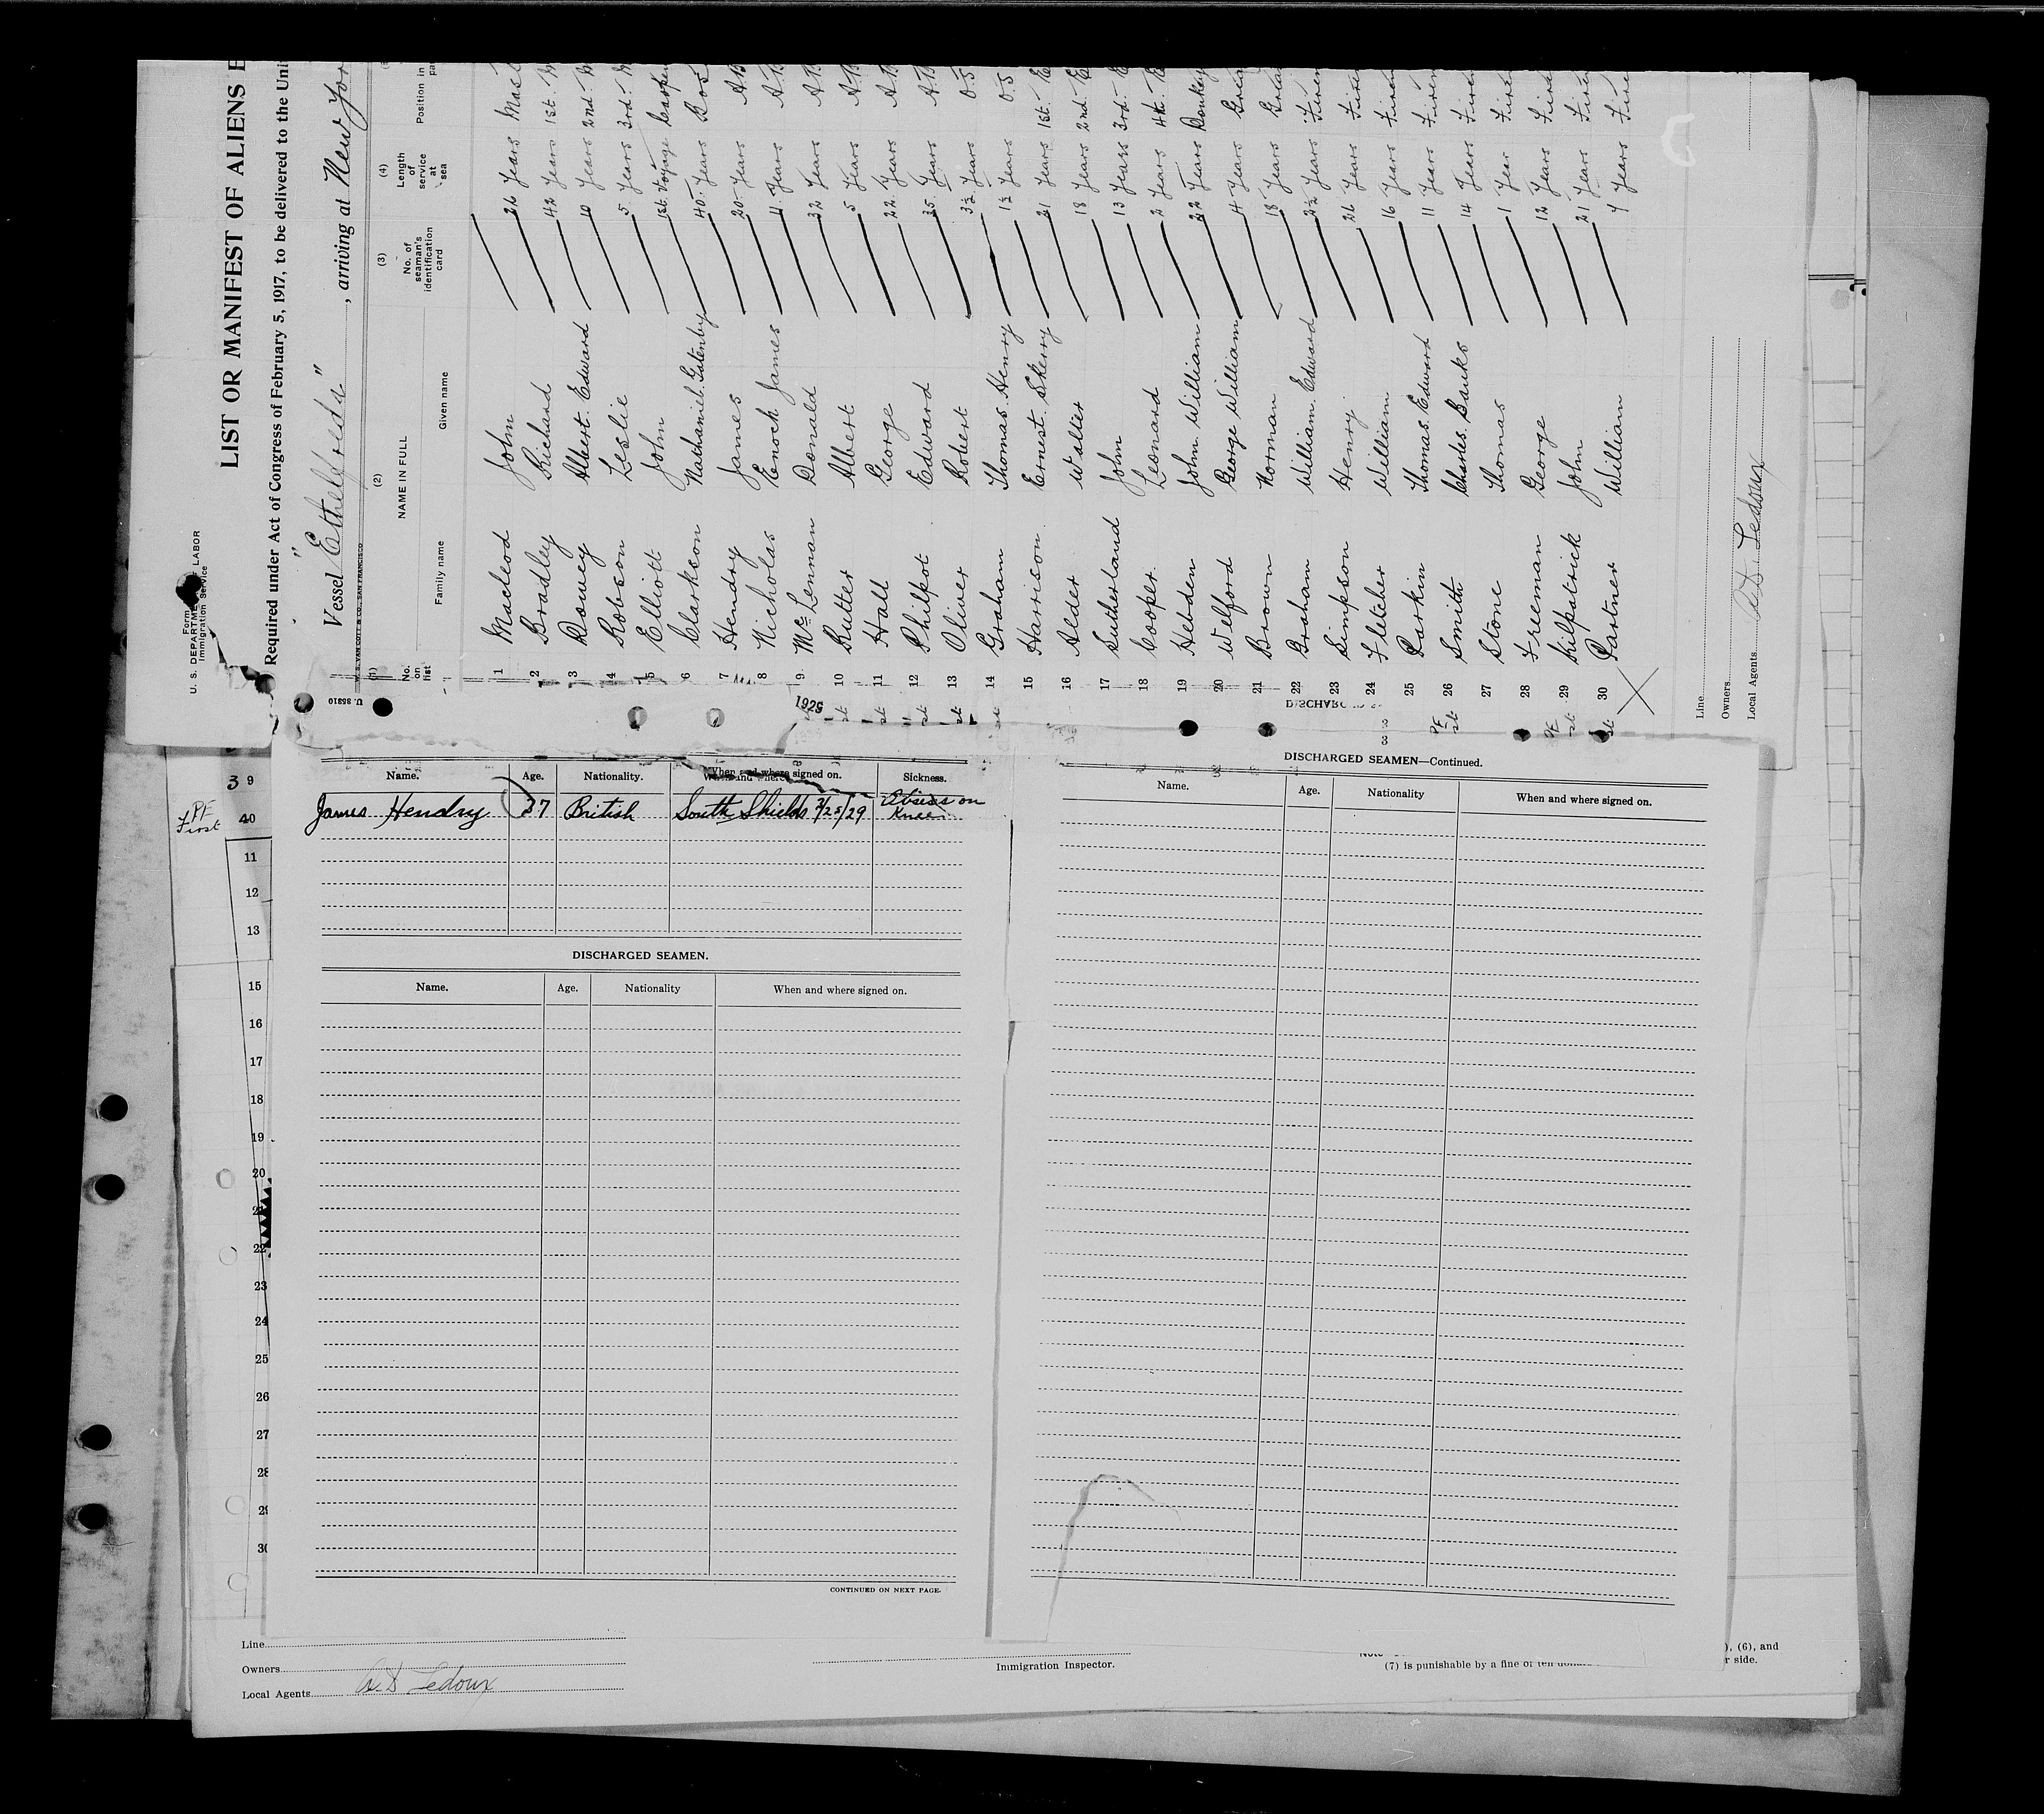 Form
U. S. DEPARTMENT LABOR
Immigration Service
LIST OR MANIFEST OF ALIENS E
Required under Act of Congress of February 5, 1917, to be delivered to the Uni
Vessel "Ethelfreda", arriving at New Yor
U. 85310
(1) (2) (3) (4)
No. on list NAME IN FULL No. of seaman's identification card Length of service at sea Position in
Family name Given name
1 Macleod John 26 Years Mast
2 Bradley Richard 42 Years 1st. M
3 Dowey Albert Edward 10 Years 2nd. M
4 Robson Leslie 5 Years 3rd. M
5 Elliott John 1st. Voyage Carpen
6 Clarkson Nathaniel Gatenby 40 Years Bos
7 Hendry James 20 Years A.B
8 Nicholas Enoch James 11 Years A.B
9 McLennan Donald 32 Years A.B
10 Rutter Albert 5 Years A.B
11 Hall George 22 Years A.B
12 Philpot Edward 35 Years A.B
13 Oliver Robert 3½ Years O.S
14 Graham Thomas Henry 1½ Years O.S
15 Harrison Ernest Skerry 21 Years 1st. E
16 Alder Walter 18 Years 2nd. E
17 Sutherland John 13 Years 3rd. E
18 Cooper Leonard 2 Years 4th. E
19 Hebden John William 22 Years Donkey
20 Welford George William 4 Years Grea
21 Brown Norman 18 Years Grea
22 Graham William Edward 2½ Years Firem
23 Simpson Henry 26 Years Firem
24 Fletcher William 16 Years Firem
25 Parkin Thomas Edward 11 Years Firem
26 Smith Charles Banks 14 Years Firem
27 Stone Thomas 1 Year Firem
28 Freeman George 12 Years Firem
29 Kilpatrick John 21 Years Firem
30 Partner William Years Fire
Line
Owners
Local Agents A.D. Ledoux
Name. Age. Nationality. When and where signed on. Sickness.
James Hendry 37 British South Shields 3/25/29 Abscess on
Knee
DISCHARGED SEAMEN.
Name. Age. Nationality When and where signed on.
CONTINUED ON NEXT PAGE.
DISCHARGED SEAMEN—Continued.
Name. Age. Nationality When and where signed on.
39
PF
First 40
11
12
13
15
16
17
18
19
20
21
22
23
24
25
26
27
28
29
30
Line
Owners
Local Agents A.D Ledoux
Immigration Inspector.
), (6), and
(7) is punishable by a fine of ten
r side.